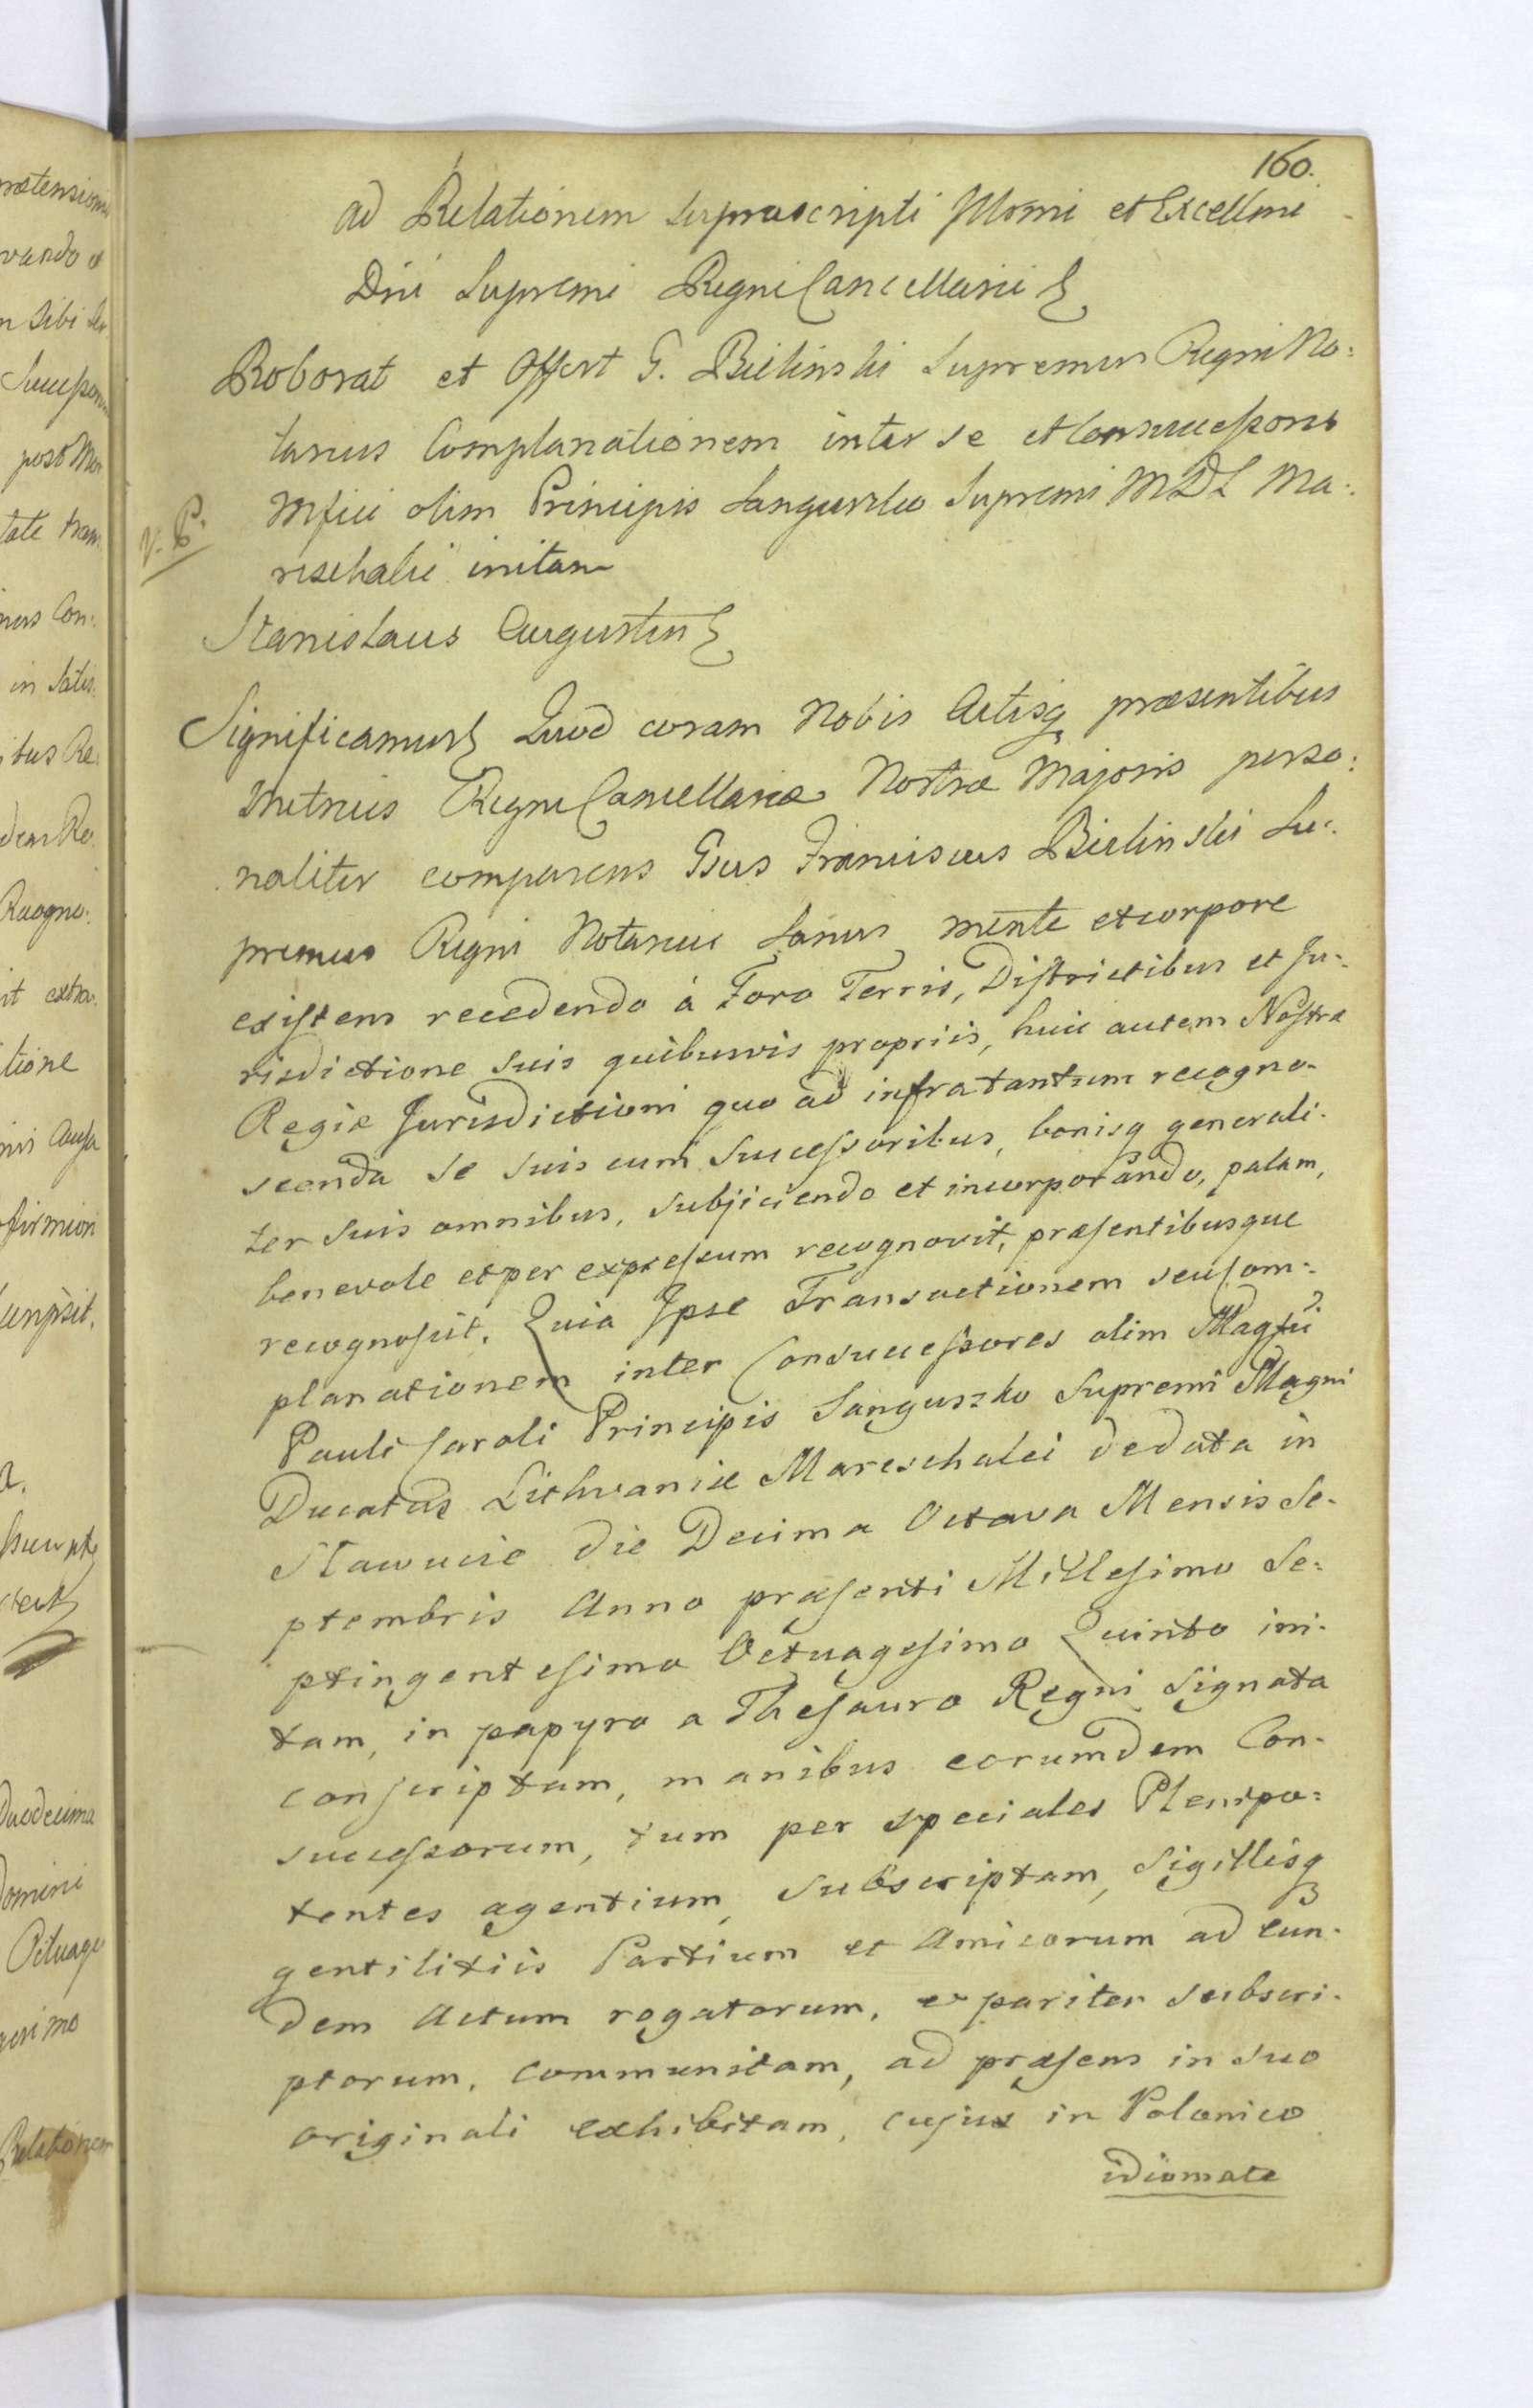 160.
ad Relationem suprascripti Illmi et Excellmi
Dni Supremi Regni Cancellarii
Roborat et Offert G. Bielinski Supremus Regni No:
tarius Complanationem inter se et Consuccessores
Mfici olim Principis Sanguszko Supremi MDL Ma:
reschalci initam
V. P.
Stanislaus Augustus
Significamus Quod coram Nobis Actisq praesentibus
Metrices Regni Cancellariae Nostrae Majoris perso:
naliter comparens Gsus Franciscus Bielinski Su:
premus Regni Notarius Sanus mente et corpore
existens recedendo à Foro Terris, Districtibus et Ju:
risdictione suis quibusvis propriis, huic autem Nostrae
Regiae Jurisdictioni quo ad infra tantum recogno-
scenda se suis cum Successoribus, bonisq generali-
ter suis omnibus, subjiciendo et incorporando, palam,
benevole et per expressum recognovit, praesentibusque
recognoscit. Quia Ipse Transactionem seu Com:
planationem inter Consuccessores olim Magfci
Pauli Caroli Principis Sanguszko Supremi Magni
Ducatus Lithvaniae Mareschalci de data in
Stawucie die Decima Octava Mensis Se-
ptembris Anno praesenti Millesimo Se:
ptingentesimo Octuagesimo Quinto ini-
tam, in papyro a Thesauro Regni Signata
conscriptam, manibus eorumdem Con-
successorum, tum per speciales Plenipo:
tentes agentium, subscriptam, Sigillisq
gentilitiis Partium et Amicorum ad eun-
dem Actum rogatorum, et pariter subscri-
ptorum, communitam, ad praesens in suo
originali exhibitam, cujus in Polonico
idiomate